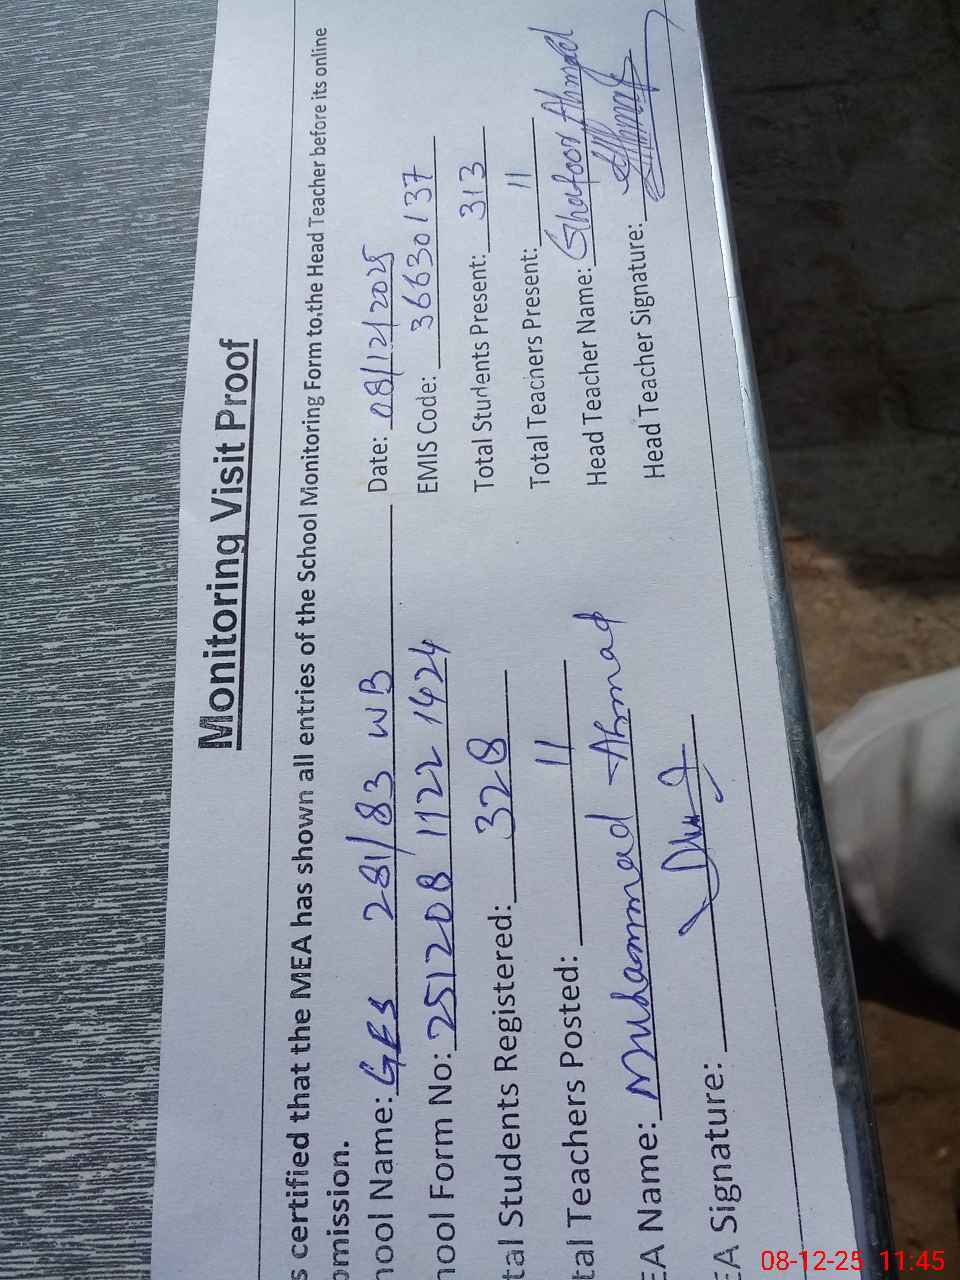 Monitoring Visit Proof
s certified that the MEA has shown all entries of the School Monitoring Form to the Head Teacher before its online
omission.
hool Name: GES 281/83 WB Date: 08/12/2025
hool Form No: 251208 1122 1424 EMIS Code: 36630137
tal Students Registered: 328 Total Students Present: 313
tal Teachers Posted: 11 Total Teachers Present: 11
EA Name: Muhammad Ahmad Head Teacher Name: Ghafoor Ahmad
EA Signature: Head Teacher Signature:
08-12-25 11:45